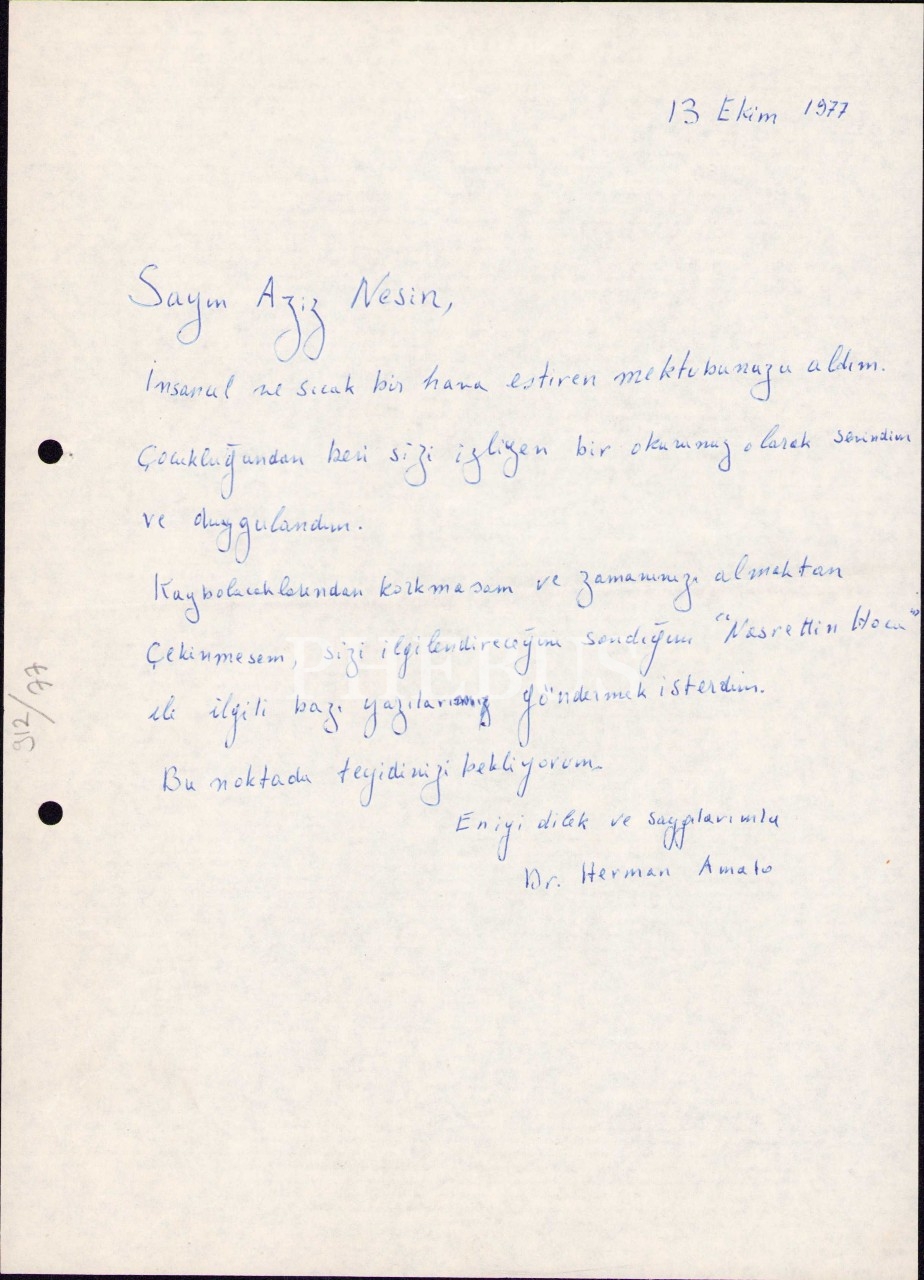 13 Ekim 1977
Sayın Aziz Nesin,
İnsancıl ve sıcak bir hava estiren mektubunuzu aldım.
Çocukluğundan beri sizi izliyen bir okurunuz olarak sevindim
ve duygulandım.
Kaybolacaklarından korkmasam ve zamanınızı almaktan
Çekinmesem, sizi ilgilendireceğini sandığım "Nasrettin Hoca"
ile ilgili bazı yazıları göndermek isterdim.
Bu noktada teyidinizi bekliyorum.
En iyi dilek ve saygılarımla
Dr. Herman Amato
912/77
PHEBUS